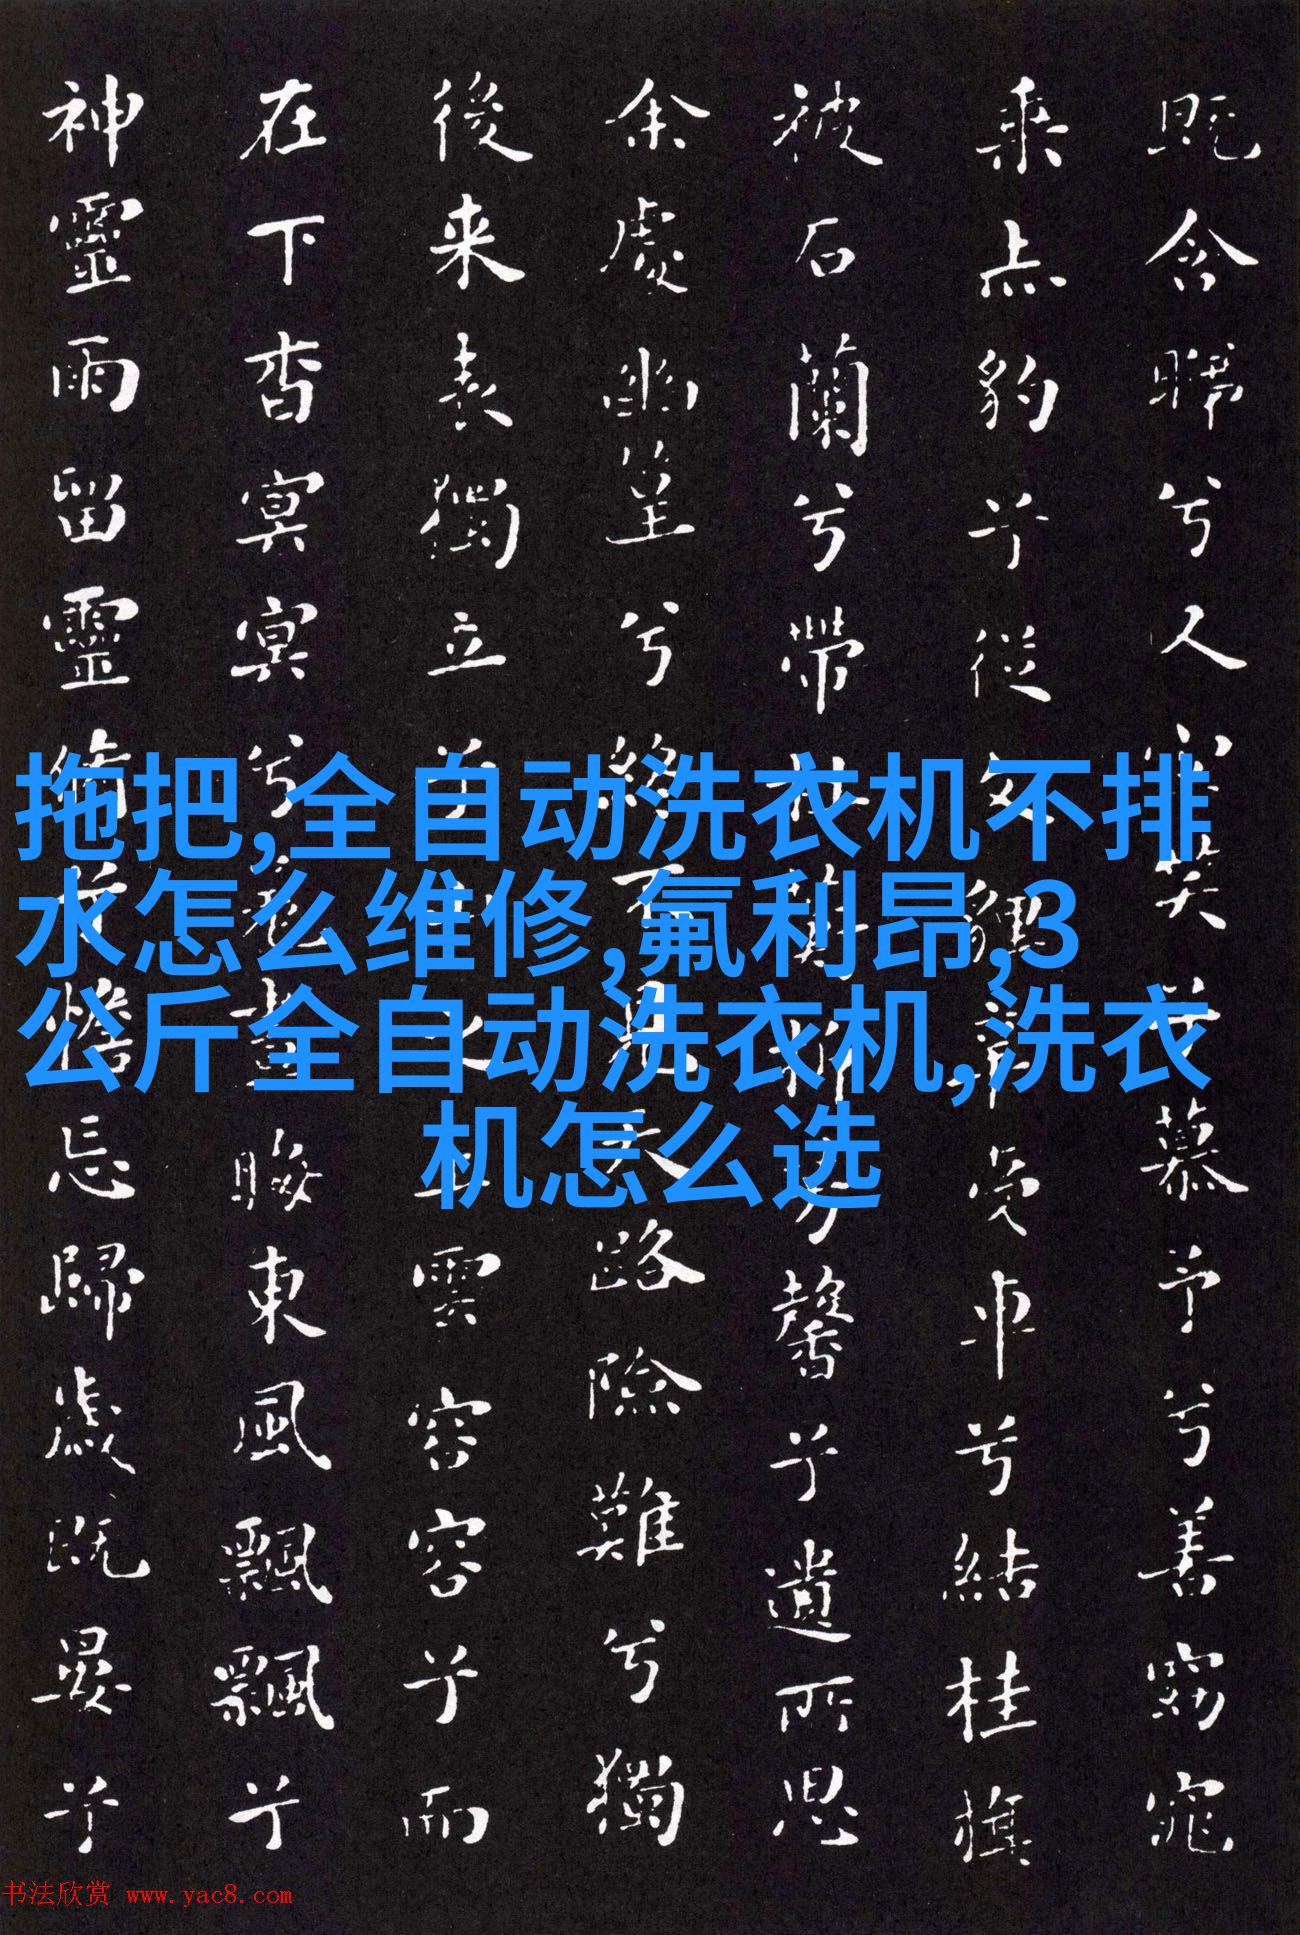 既含睇兮又宜笑子慕予兮善窈窕
乘赤豹兮從文貍辛夷車兮結桂旗
被石蘭兮帶杜蘅折芳馨兮遺所思
余處幽篁兮終不見天路險難兮獨
後來表獨立兮山之上雲容容兮而
在下杳冥冥兮羌晝晦東風飄飄兮
神靈雨留靈脩兮憺忘歸歲既晏兮
拖把,全自动洗衣机不排
水怎么维修,氟利昂,3
公斤全自动洗衣机,洗衣
机怎么选
书法欣赏 www.yac8.com